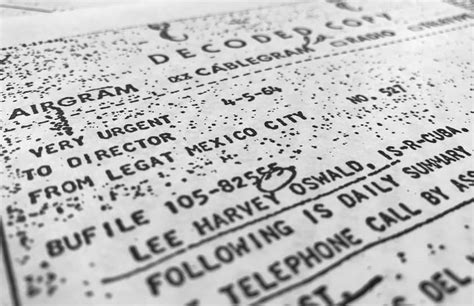 DECODED COPY
AIRGRAM CABLEGRAM RADIO
4-5-64
VERY URGENT NO. 527
TO DIRECTOR
FROM LEGAT MEXICO CITY
BUFILE 105-82555
LEE HARVEY OSWALD, IS-R-CUBA.
FOLLOWING IS DAILY SUMMARY
TELEPHONE CALL BY
DEL